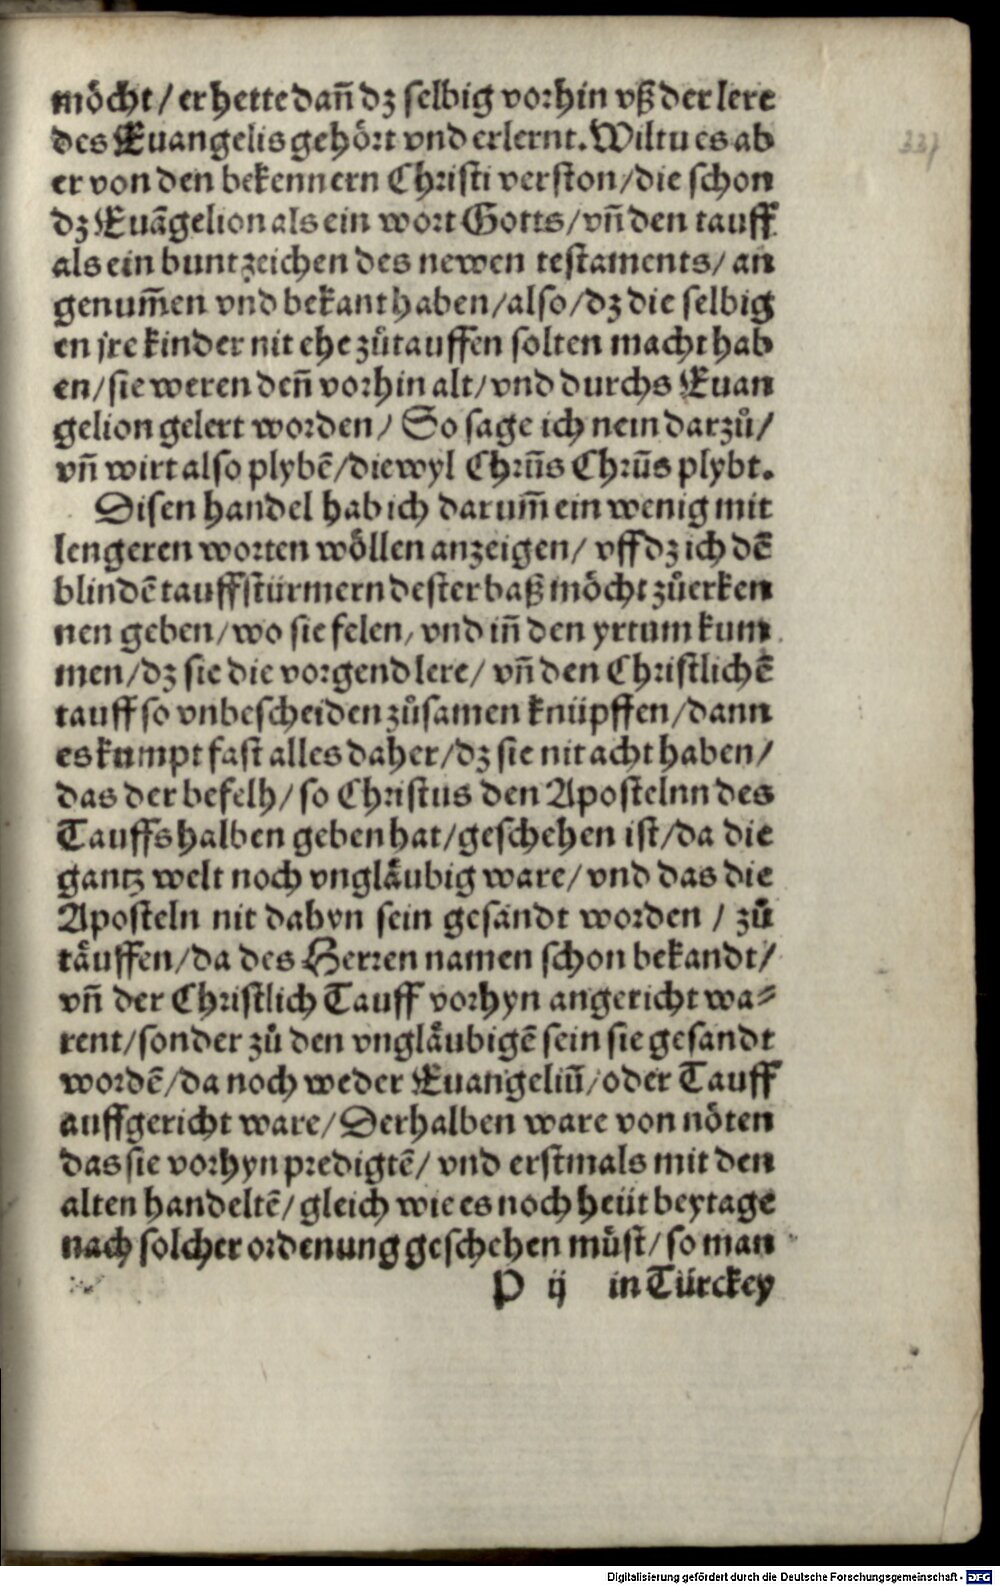 möcht / er hette dañ dz selbig vorhin vß der lere
des Euangelis gehört vnd erlernt. Wiltu es ab
er von den bekennern Christi verston / die schon
dz Euãgelion als ein wort Gotts / vñ den tauff
als ein buntzeichen des newen testaments / an
genum̃en vnd bekant haben / also / dz die selbig
en jre kinder nit ehe zůtauffen solten macht hab
en / sie weren deñ vorhin alt / vnd durchs Euan
gelion gelert worden / So sage ich nein darzů /
vñ wirt also plybẽ / diewyl Chrũs Chrũs plybt.
Disen handel hab ich darum̃ ein wenig mit
lengeren worten wöllen anzeigen / vff dz ich dẽ
blindẽ tauffstürmern dester baß möcht zůerken
nen geben / wo sie felen / vnd iñ den yrtum kum
men / dz sie die vorgend lere / vñ den Christlichẽ
tauff so vnbescheiden zůsamen knüpffen / dann
es kumpt fast alles daher / dz sie nit acht haben /
das der befelh / so Christus den Apostelnn des
Tauffs halben geben hat / geschehen ist / da die
gantz welt noch vngläubig ware / vnd das die
Aposteln nit dahyn sein gesandt worden / zů
täuffen / da des Herren namen schon bekandt /
vñ der Christlich Tauff vorhyn angericht wa⸗
rent / sonder zů den vngläubigẽ sein sie gesandt
wordẽ / da noch weder Euangeliũ / oder Tauff
auffgericht ware / Derhalben ware von nöten
das sie vorhyn predigtẽ / vnd erstmals mit den
alten handeltẽ / gleich wie es noch heüt beytage
nach solcher ordenung geschehen müst / so man
P ij in Türckey
337
Digitalisierung gefördert durch die Deutsche Forschungsgemeinschaft - DFG